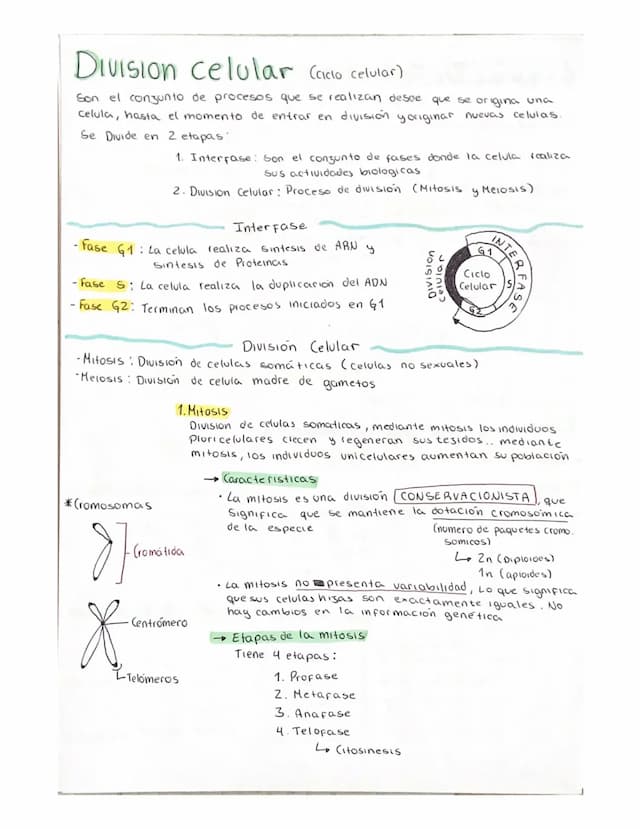 Division celular (ciclo celular)
Son el conjunto de procesos que se realizan desde que se origina una
celula, hasta el momento de entrar en división y originar nuevas celulas.
Se Divide en 2 etapas:
1. Interfase: Son el conjunto de fases donde la celula realiza
sus actividades biologicas
2. Division Celular: Proceso de división (Mitosis y Meiosis)
Interfase
- Fase G1: La celula realiza sintesis de ARN y
sintesis de Proteinas
- Fase S: La celula realiza la duplicación del ADN
- Fase G2: Terminan los procesos iniciados en G1
División Celular
INTERFASE
G1
S
G2
Ciclo
Celular
División Celular
- Mitosis: División de celulas somáticas (celulas no sexuales)
- Meiosis: División de celula madre de gametos
1. Mitosis
Division de celulas somaticas, mediante mitosis los individuos
Pluricelulares crecen y regeneran sus tejidos.. mediante
mitosis, los individuos unicelulares aumentan su población
→ Caracteristicas
• La mitosis es una división CONSERVACIONISTA, que
Significa que se mantiene la dotación cromosómica
de la especie
(numero de paquetes cromo.
somicos)
↳ 2n (Diploides)
1n (aploides)
• La mitosis no presenta variabilidad, Lo que significa
que sus celulas hijas son exactamente iguales. No
hay cambios en la información genética
*Cromosomas
Cromátida
Centrómero
Telómeros
→ Etapas de la mitosis
Tiene 4 etapas:
1. Profase
2. Metafase
3. Anafase
4. Telofase
↳ Citosinesis